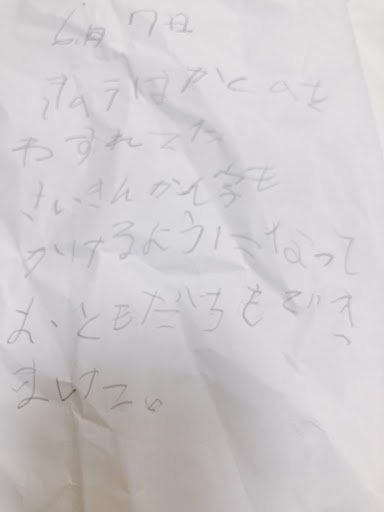 6月7日
きのうはかくのを
わすれてた
さいきんかん字も
かけるようになって
おともだちもでき
ました。